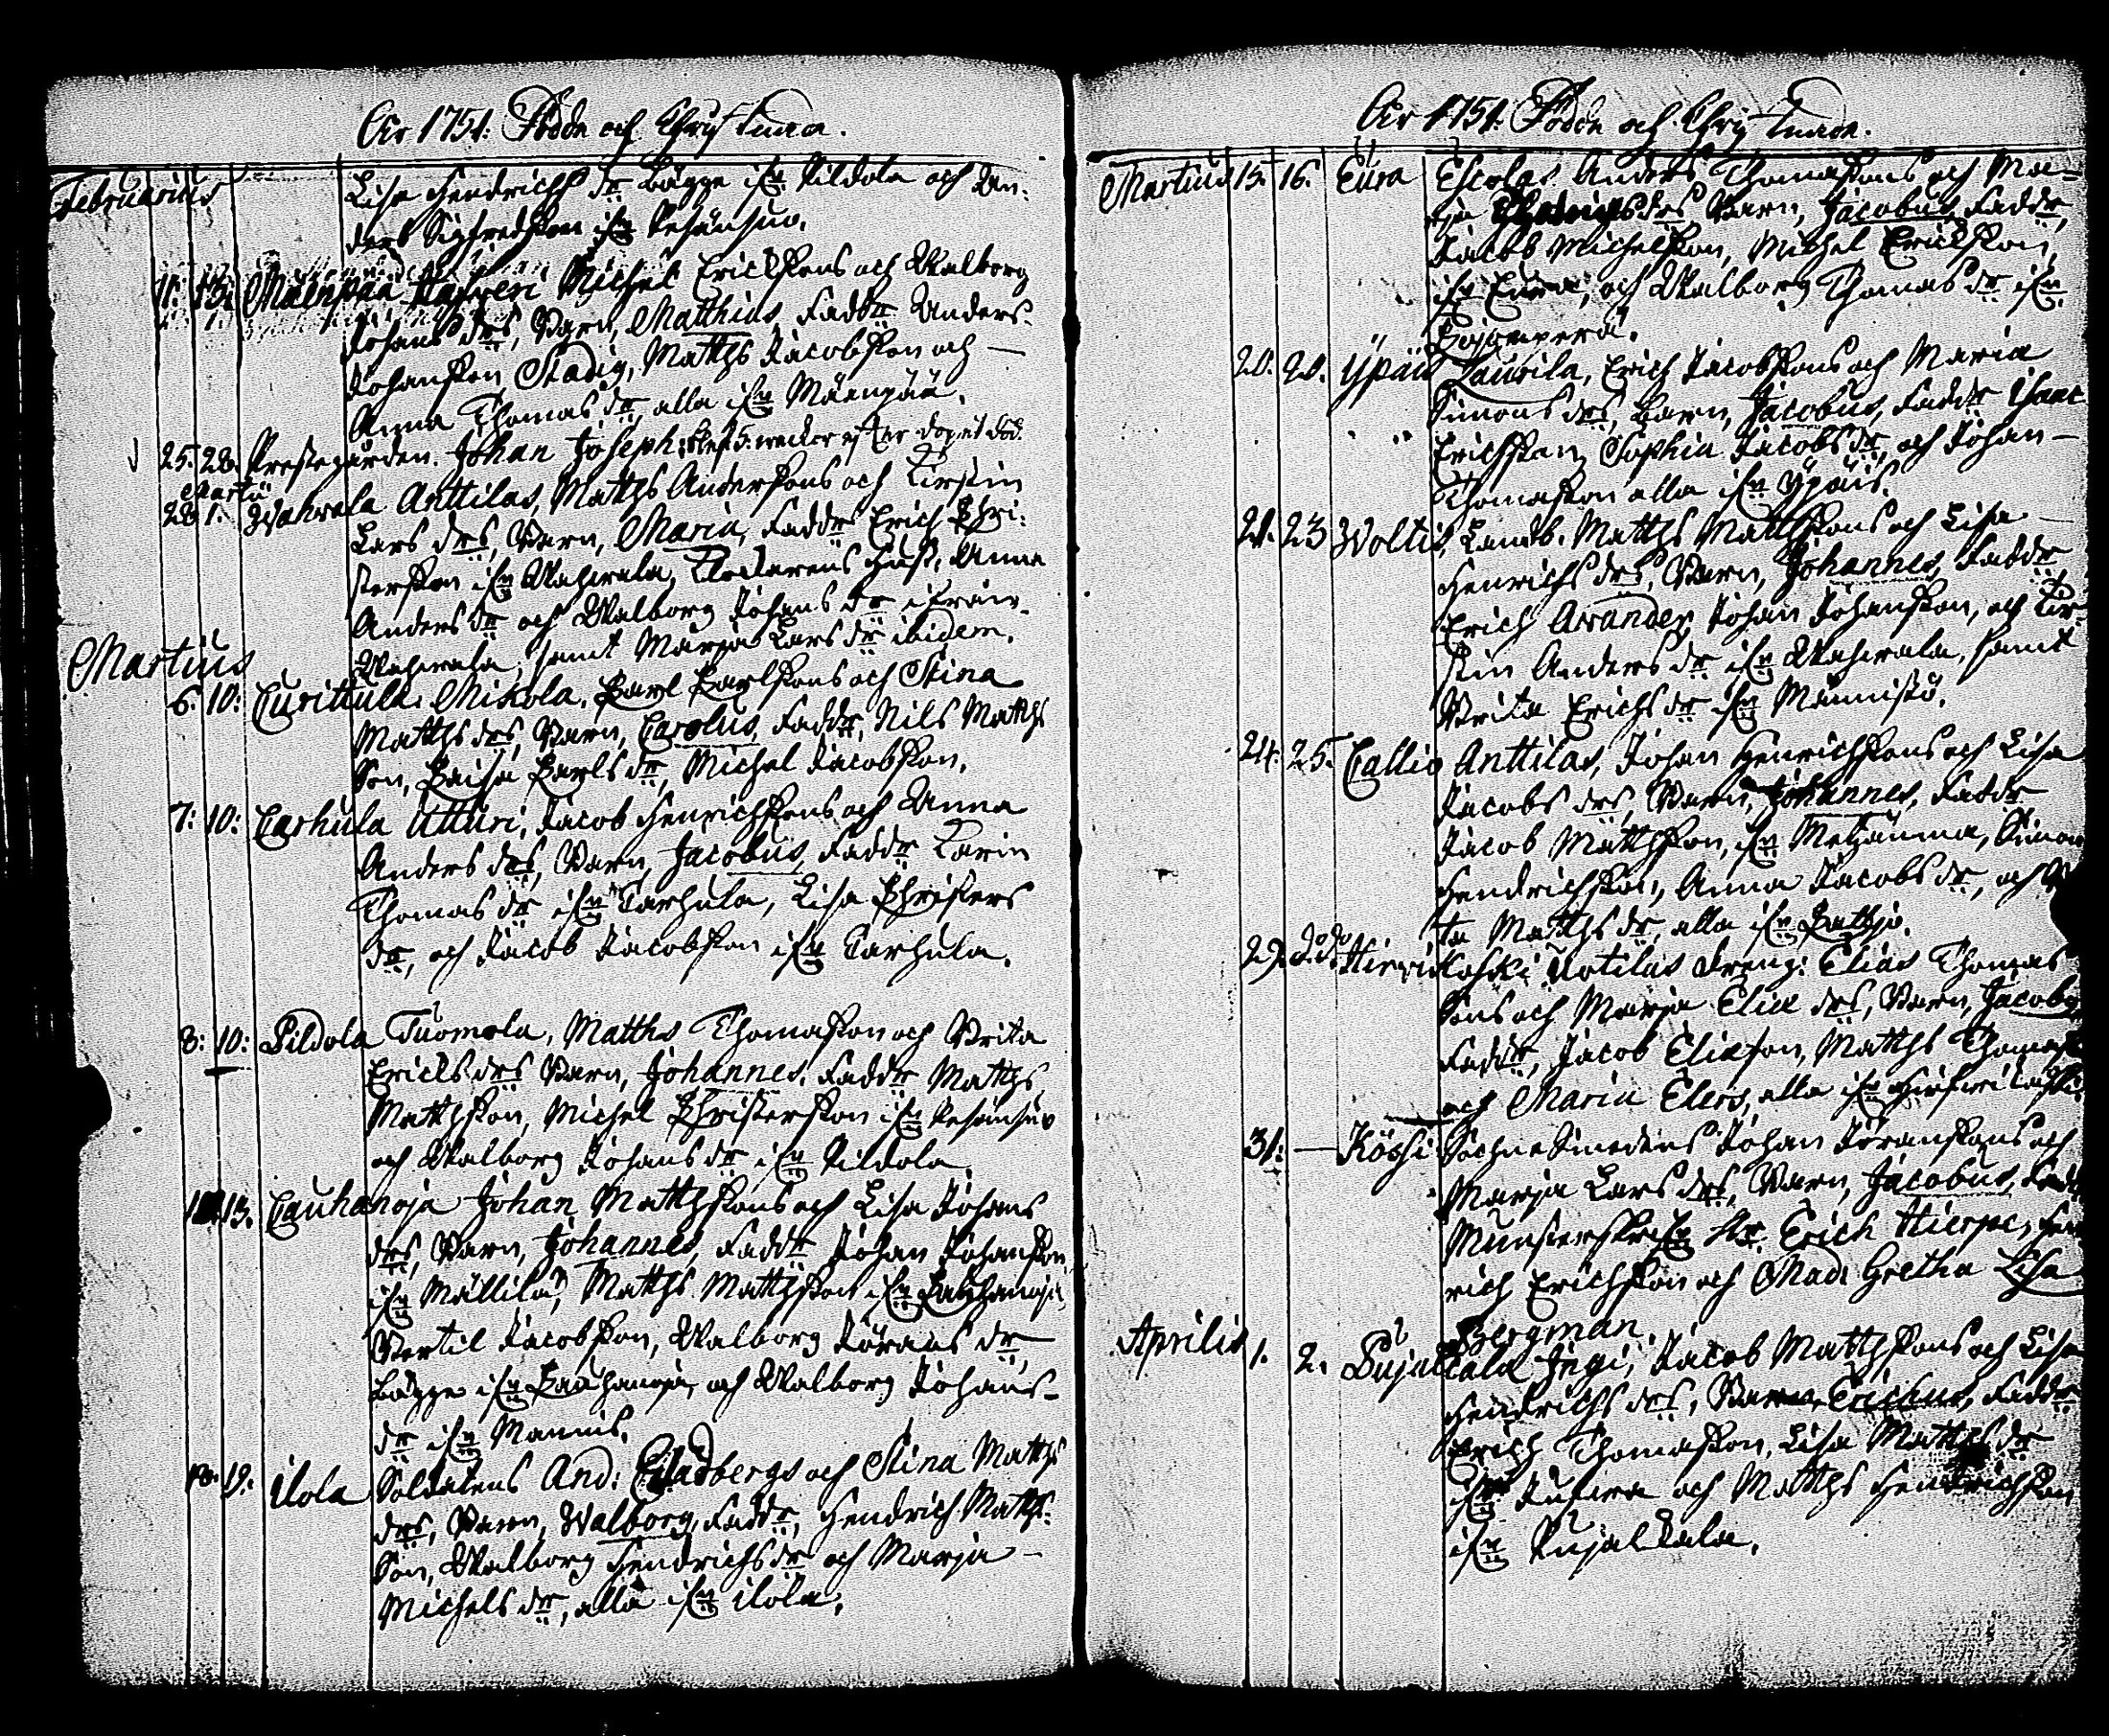 Åhr 1751: Födde och Christnade.
Februarius
Lisa Hendrichs dr Bägge ifrån Kildola och An-
ders Sigfredsson ifrån
11. 13. Mäenpää Michel Erickssons och Walborg
Johans drs, Barn, Matthias, Faddr Anders
Johansson Stadig, Matths Jacobsson och
Anna Thomas dr, alla ifrån Mäenpää.
25. 28. Prestegården. Johan Joseph: 5. weckor efter dopet död.
Martii
28 1. Wahrala Anttilas, Matths Anderssons och Kirstin
Lars drs, Barn, Maria, Faddr Erich Chri-
stersson ifrån Wahrala, Hust. Anna
Anders dr och Walborg Johans dr ifrån
Wahrala, samt Marja Lars dr ibidem.
Martius
6. 10: Curittula Mikola, Carl Carlssons och Stina
Matths drs, Barn, Carolus, Faddr, Nils Matths
Son, Caisa Carls dr, Michel Jacobsson.
7: 10: Carhula Utturi, Jacob Henrichssons och Anna
Anders drs, Barn, Jacobus, Faddr Karin
Thomas dr ifrån Carhula, Lisa Christers
dr, och Jacob Jacobsson ifrån Carhula.
8: 10: Kildola Tuomola, Matths Thomasson och Brita
Ericks drs Barn, Johannes, Faddr Matths
Mattsson, Michel Christersson ifrån
och Walborg Johans dr ifrån Kildola.
13. Cauhanoja Johan Mattssons och Lisa Johans
drs, Barn, Johannes, Faddr Johan Johansson
ifrån Mällilä, Matths Mattsson ifrån Cauhanoja,
Bertil Jacobsson, Walborg Jörans dr,
Bägge ifrån Cauhanoja, och Walborg Johans-
dr ifrån Mannis.
19. Ilola Soldatens And: och Stina Matths
drs, Barn, Walborg, Faddr, Hendrich Matths-
Son, Walborg Hendrichs dr och Marja
Michels dr, alla ifrån Ilola.
Åhr 1751. Födde och Christnade.
Martius 15. 16. Eura Eskolas Anders Thomassons och Ma-
rja drs Barn, Jacobus, Faddr,
Jacob Michelsson, Michel Erichsson
ifrån Eura, och Walborg Thomas dr ifrån
20. 20. Ypäis Laurila, Erich Jacobssons och Maria
Simons drs, Barn, Jacobus, Faddr Isaac
Erichsson, Sophia Jacobs dr, och Johan
Thomasson alla ifrån Ypäis.
21. 23 Woltis, Landb. Matths Mattssons och Lisa
Henrichs drs, Barn, Johannes, Faddr
Erich Arander, Johan Johansson, och Kir-
stin Anders dr ifrån Wahrala, samt
Brita Erichs dr ifrån Männistö.
24. 25. Callio Anttilas, Johan Henrichssons och Lisa
Jacobs drs, Barn, Johannes, Faddr
Jacob Mattsson, ifrån Metzänma, Simon
Hendrichsson, Anna Jacobs dr, och
ta Matths dr, alla ifrån
29. do Hirvikoski Uotilas Dreng: Elias Thomas
Sons och Marja Eliæ drs, Barn, Jacobus
Faddr, Jacob Eliæson, Matths
och Maria Elers, alla ifrån Hirfvikoski.
31. — Köski Sochne Smedens Johan Jöranssons och
Marja Lars drs, Barn, Jacobus,
Munsterskr. Hr Erich Hierpe,
rich Erichsson och Mad: Gretha Lisa
Bergman.
Aprilis 1. 2. Pujalkala Jngi, Jacob Mattssons och Lisa
Hendrichs drs, Barn, Erichus, Faddr
Erich Thomasson, Lisa Matths dr
ifrån och Matths Hendrichsson
ifrån Pujalkala.